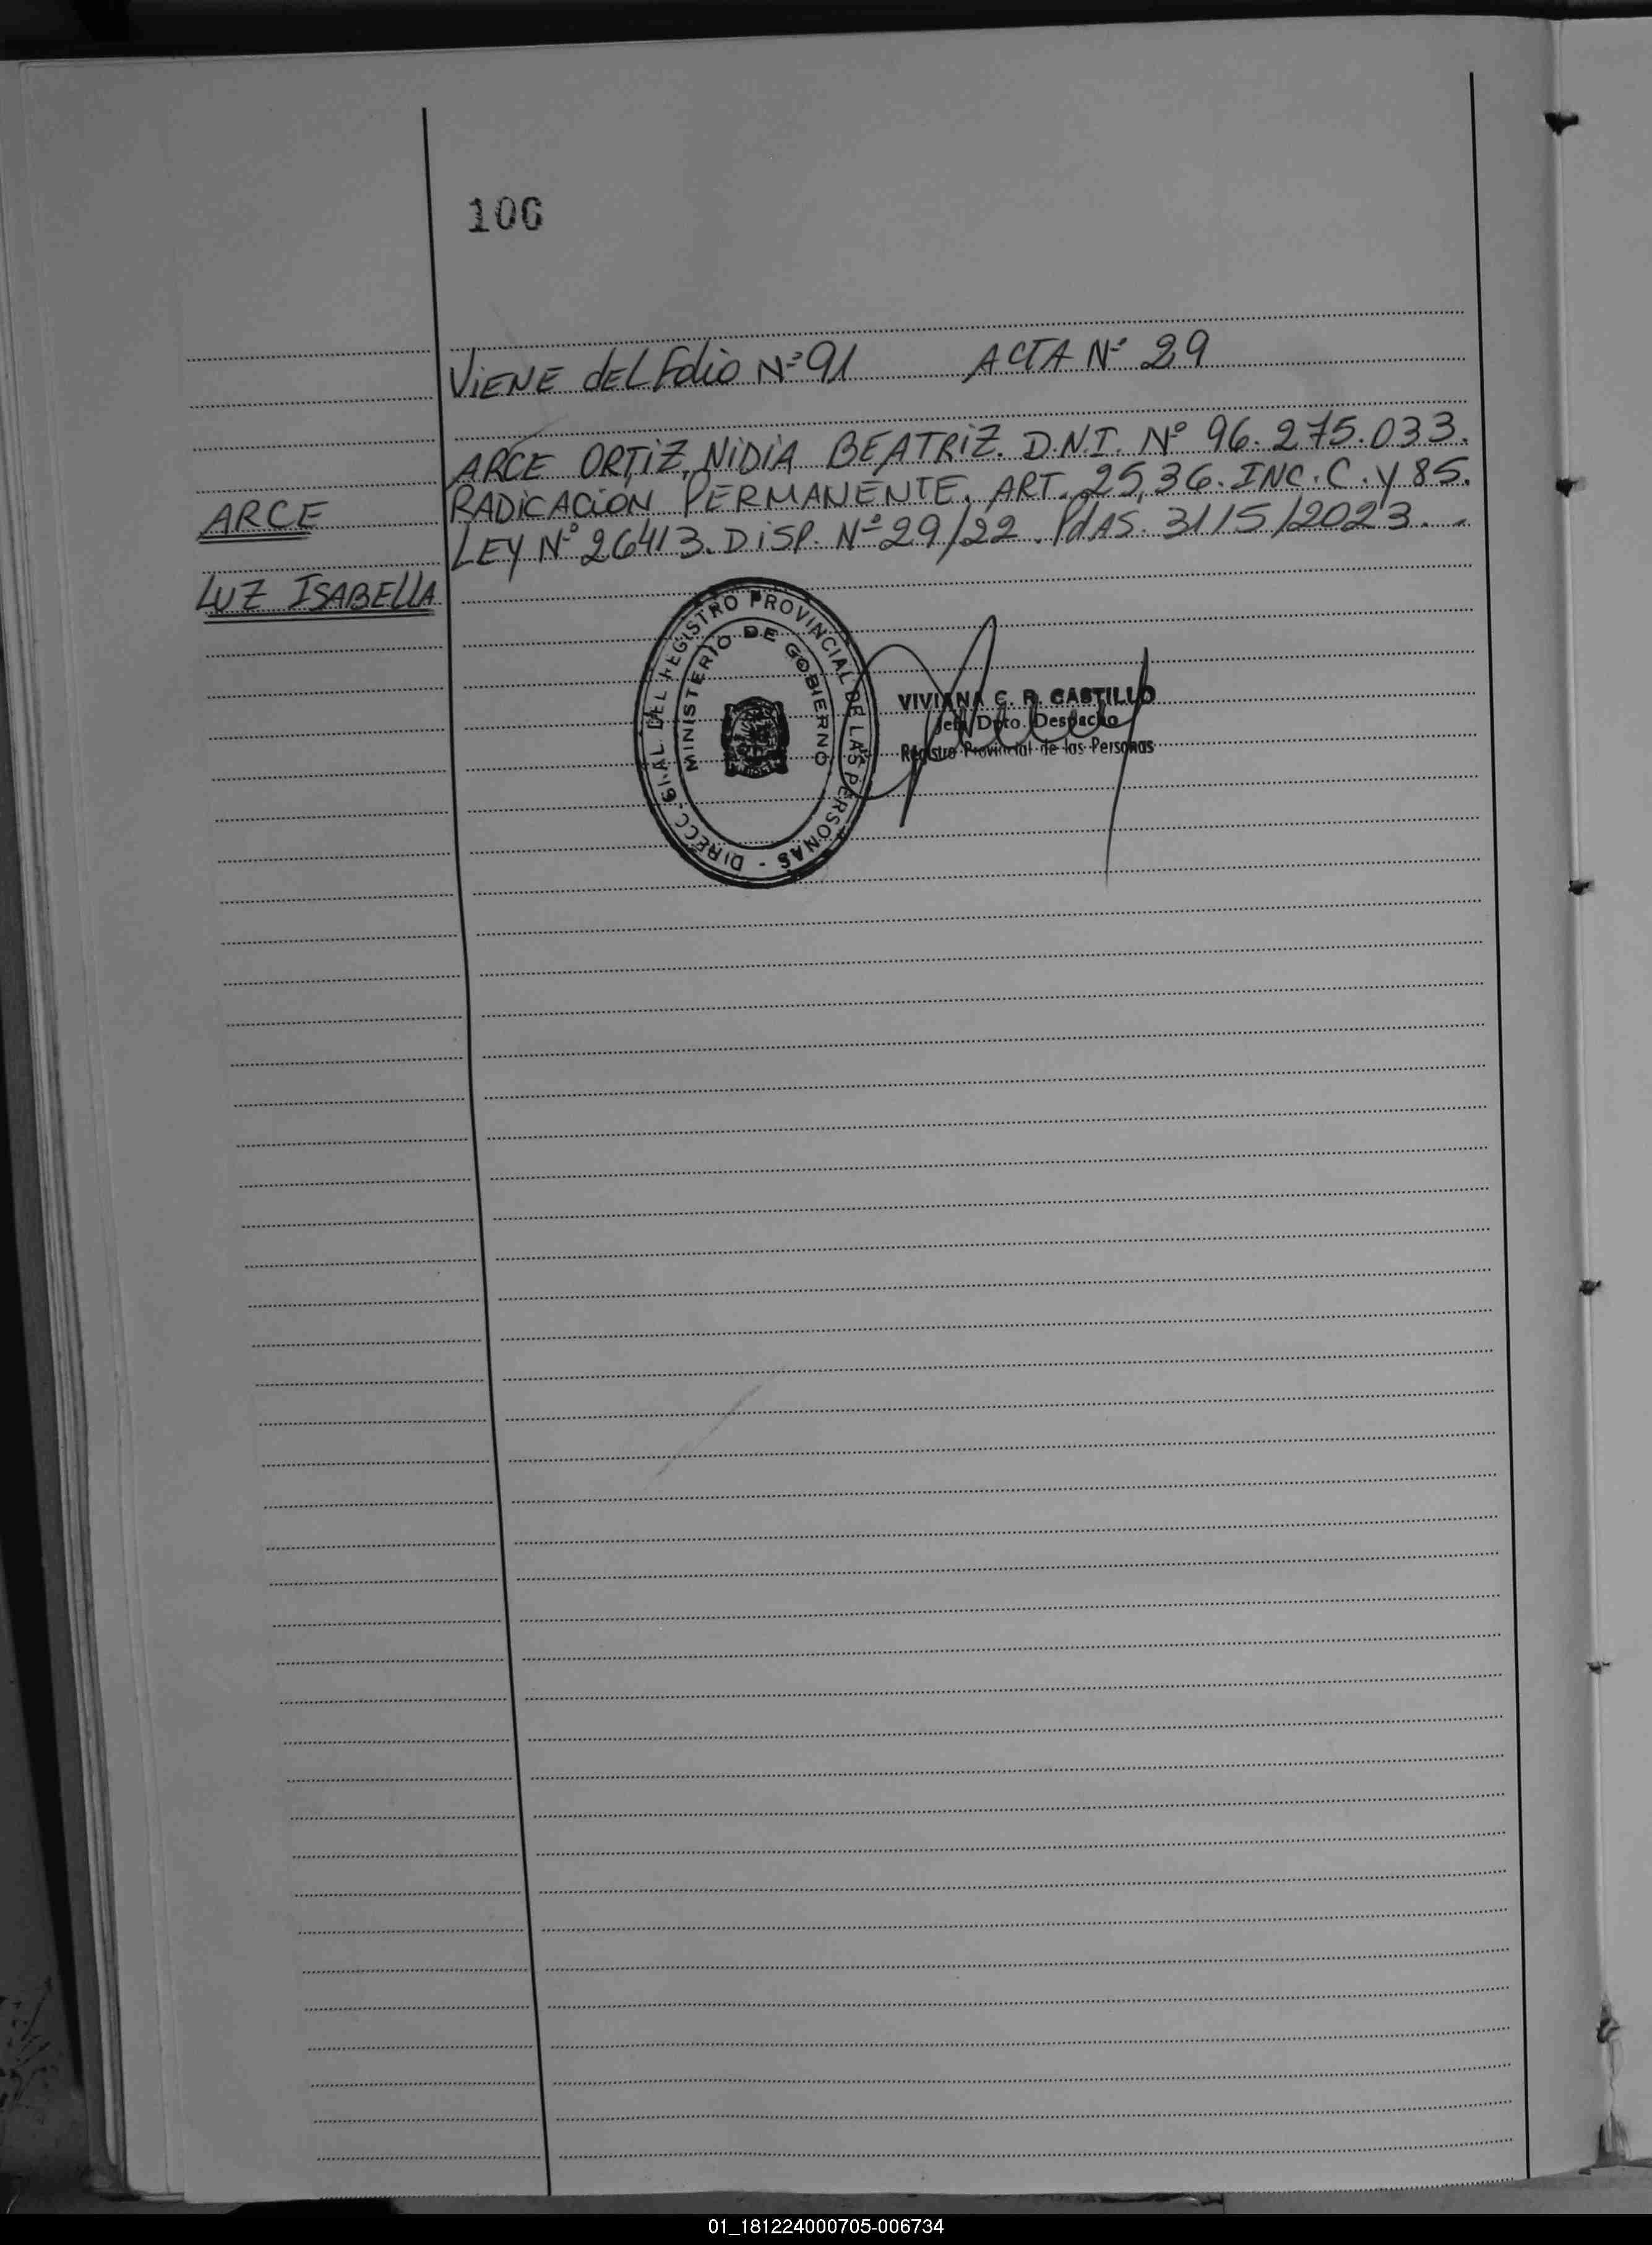 106
VIENE del Folio Nº 91 ACTA Nº 29
ARCE ORTIZ, NIDIA BEATRIZ. D.N.I. Nº 96.275.033.
RADICACION PERMANENTE. ART. 25,36. INC. C. Y 85.
LEY Nº 26413. DISP. Nº 29/22. PdAS. 31/5/2023.-
ARCE
LUZ ISABELLA
DIRECC. GRAL DEL REGISTRO PROVINCIAL DE LAS PERSONAS -
MINISTERIO DE GOBIERNO
VIVIANA C. R. CASTILLO
Jefa Dpto. Despacho
Registro Provincial de las Personas
01_181224000705-006734